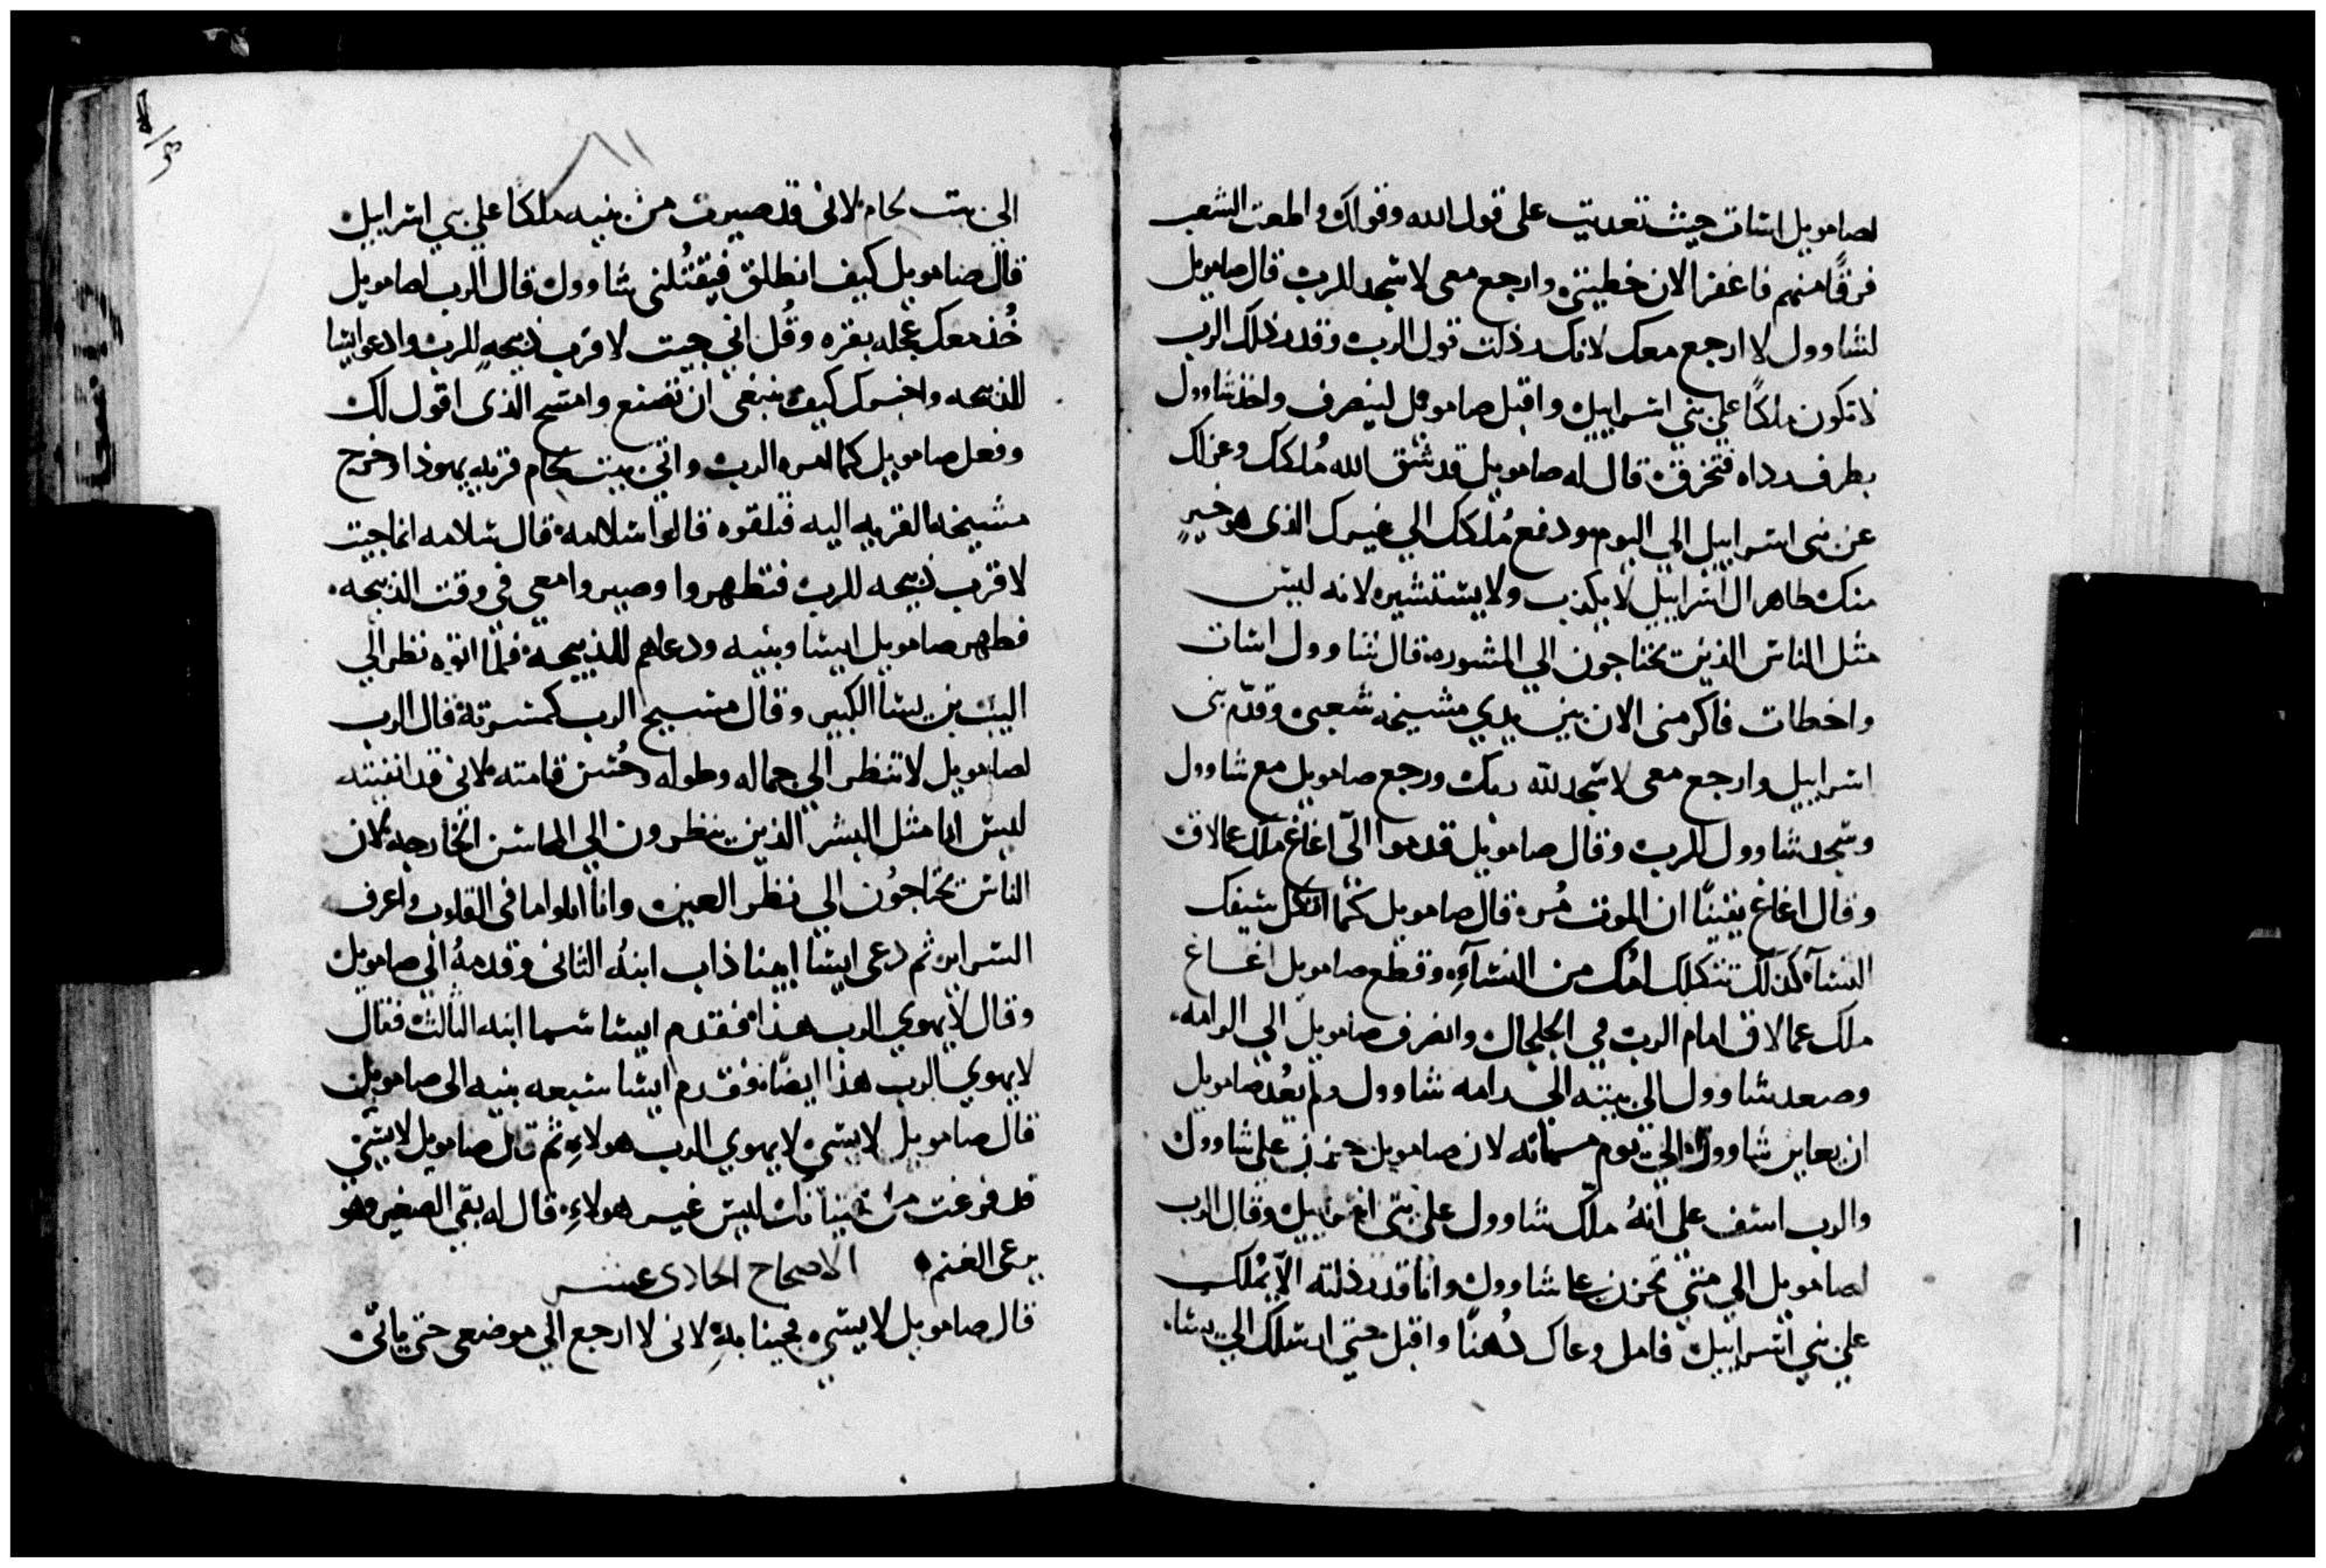 لصامويل اسات حيث تعديت على قول الله وقولك واطعت الشعب
فرقًا منهم فاغفر الان خطيتى وارجع معى لاسجد للرب قال صامويل
لشاوول لا ارجع معك لانك رذلت قول الرب وقد رذلك الرب
لا تكون ملكًا على بني اسراييل واقبل صامويل لينصرف واخذ شاوول
بطرف رداه فتخرق قال له صامويل قد شق الله مُلكك وعزلك
عن بنى اسراييل الى اليوم ودفع مُلكك الى غيرك الذى هو خيرٍ
منك طاهر ال اسراييل لا يكذب ولا يستشير لانه ليس
مثل الناس الذين يحتاجون الى المشوره قال شاوول اسات
واخطات فاكرمنى الان بين يدي مشيخة شعبى وقدّم بنى
اسراييل وارجع معى لاسجد لله ربك ورجع صامويل مع شاوول
وسجد شاوول للرب وقال صامويل قدموا اليّ اغاغ ملك عمالاق
وقال اغاغ يقينًا ان الموت مُر قال صامويل كما اثكل سيفك
النسآ كذلك تثكلك امك من النسآءِ وقطع صامويل اغاغ
ملك عمالاق امام الرب في الجلجال وانصرف صامويل الى الرامه
وصعد شاوول الى بيته الى رامه شاوول ولم يعُد صامويل
ان يعاين شاوول الى يوم مماته لان صامويل حزن على شاوول
والرب اسف على انهُ ملّك شاوول على بنى اسراييل وقال الرب
لصامويل الى متى تحزن على شاوول وانا قد رذلته الاّ يملك
على بني اسراييل فامل وعاك دُهنًا واقبل حتى ارسلك الى يسا
الى بيت لحام لانى قد صيرت من بنيه ملكًا على بني اسراييل
قال صامويل كيف انطلق فيقتُلنى شاوول قال الرب لصامويل
خُذ معك عجله بقره وقُل انى جيت لاقرب ذبيحهٍ للرب وادعو ايشا
للذبيحه واخبرك كيف ينبغى ان تصنع وامسح الذى اقول لك
وفعل صامويل كما امره الرب واتى بيت لحام قريه يهوذا وخرج
مشيخة القريه اليه فتلقوه قالوا سلامة قال سلامه انما جيت
لاقرب ذبيحه للرب فتطهروا وصيروا معى في وقت الذبيحه
فطهر صامويل ايشا وبنيه ودعاهم للذبيحة فلما اتوه نظر الى
اليب بن يشا الكبير وقال مسيح الرب كمسرته قال الرب
لصامويل لا تنظر الى جماله وطوله وحُسن قامته لانى قد انفيته
ليس انا مثل البشر الذين ينظرون الى المحاسن الخارجه لان
الناس يحتاجُون الى نظر العين وانا ابلوا ما فى القلوب واعرف
السراير ثم دعى ايشا ابينا ذاب ابنهُ الثانى وقدمهُ الى صامويل
وقال لا يهوي الرب هذا فقدم ايشا شما ابنه الثالث فقال
لا يهوي الرب هذا ايضًا فقدم ايشا سبعه بنيه الى صامويل
قال صامويل لايسي لا يهوي الرب هولاءِ ثم قال صامويل لايسي
قد فرغت من فتيانك ليس غير هولاءِ قال له بقى الصغير وهو
يرعى الغنم الاصحاح الحادى عشر
قال صامويل لايسي فجينا بهِ لانى لا ارجع الى موضعى حتى ياتى